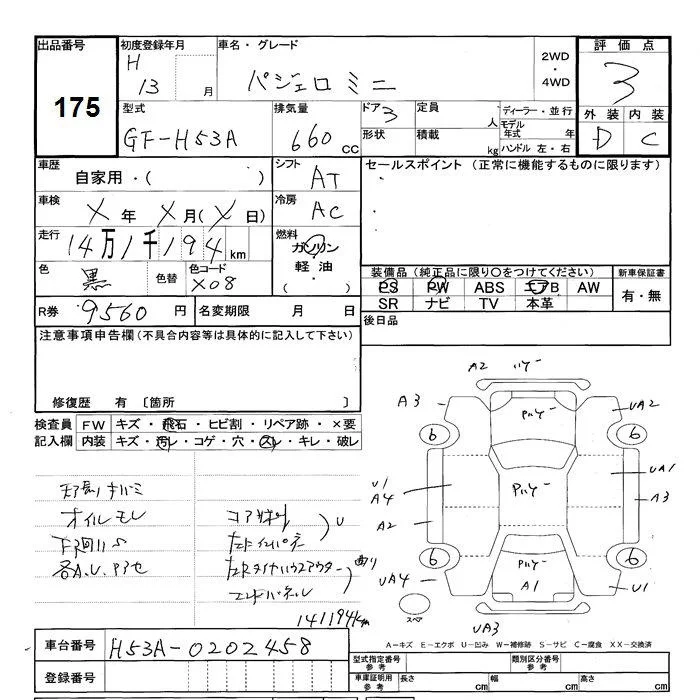 出品番号
175
初度登録年月
H
13 月
車名・グレード
パジェロ ミニ
2WD
・
4WD
評価点
3
外装 内装
D C
型式
GF-H53A
排気量
660 CC
ドア 3
定員 人
ディーラー・並行
モデル
年式 年
形状
積載 kg
ハンドル 左・右
車歴
自家用・( )
シフト
AT
セールスポイント (正常に機能するものに限ります)
車検
X 年 X 月(X 日)
冷房
AC
走行
14万1千194 km
燃料
ガソリン
軽油
( ・ )
色
黒
色替
色コード
X08
装備品(純正品に限り〇をつけてください)
PS PW ABS エアB AW
SR ナビ TV 本革
新車保証書
有・無
R券 9560 円
名変期限 月 日
後日品
注意事項申告欄(不具合内容等は具体的に記入して下さい)
修復歴 有 〔箇所 〕
検査員
記入欄
FW キズ・飛石・ヒビ割・リペア跡・×要
内装 キズ・汚レ・コゲ・穴・スレ・キレ・破レ
オイルモレ
下廻りS
コアサポ
U
曲り
エンドパネル
141194km
A2
A3
UA2
6
6
U1
A4
UA1
A3
A2
6
6
UA4
A1
U1
スペア
UA3
車台番号 H53A-0202458
登録番号
A-キズ E-エクボ U-凹み W-補修跡 S-サビ C-腐食 XX-交換済
型式指定番号
参考
類別区分番号
参考
車庫証明用
参考
長さ cm 幅 cm 高さ cm